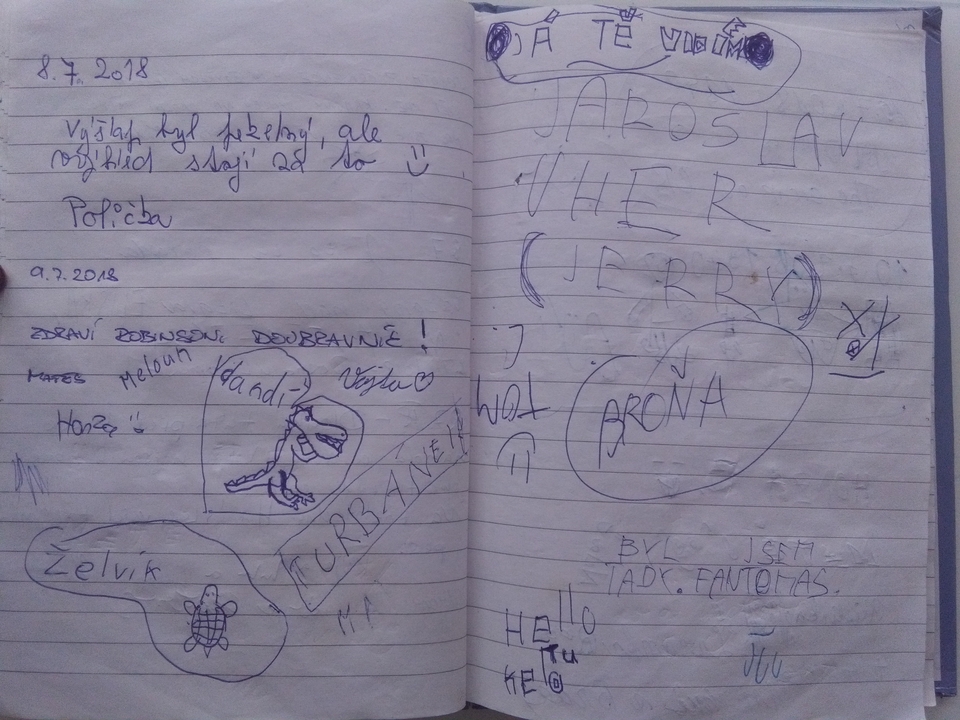 8.7.2018
Výšlap byl pekelný, ale
výhled stojí za to
Polička
9.7.2018
ZDRAVÍ ROBINSONI DOUBRAVNÍK!
MATES Meloun Vandi Vojta
Honza
TURBÁNEK
Želvík
JÁ TĚ VIDÍM
JAROSLAV
UHER
(JERRY)
XX
BROŇA
BYL JSEM
TADY. FANTOMAS.
HEllo
Tu
KElo